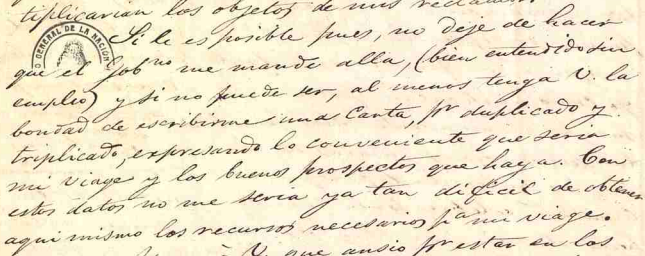 tiplicarian los objetos de mis
Si le es posible pues, no deje de hacer
que el Gob.no me mande alla, (bien entendido sin
emplio) y si no puede ser, al menos tenga V. la
bondad de escribirme una Carta, pr duplicado y
triplicado, expresando lo conveniente que seria
mi viage y los buenos prospectos que haya. Con
estos datos no me seria ya tan dificil de obtener
aqui mismo los recursos necesarios pa mi viage.
V. que ansio pr estar en los
GENERAL DE LA NACION